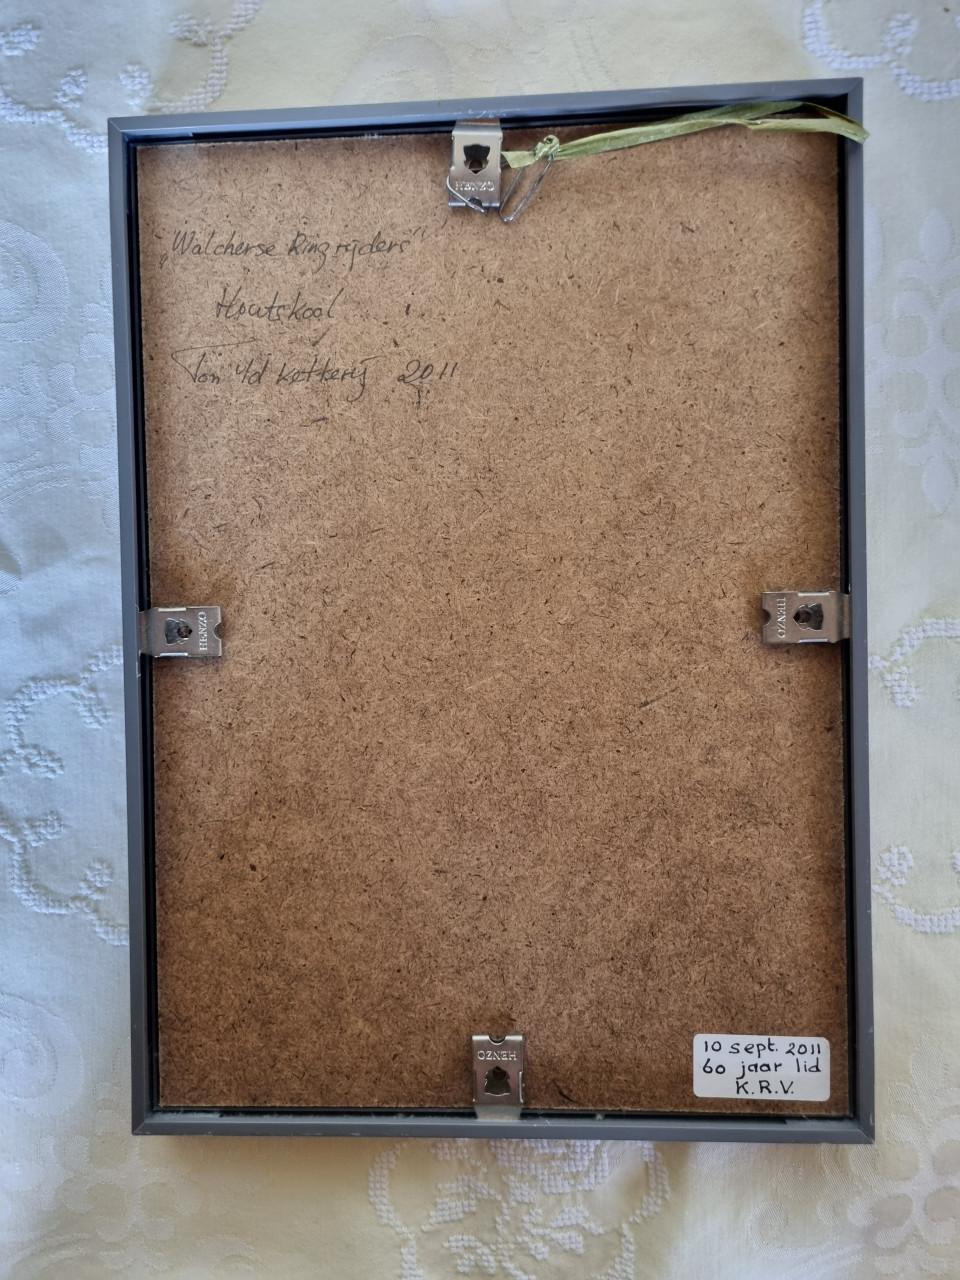 HENZO
„Walcherse Ringrijders"
Houtskool
Ton v/d Ketterij 2011
HENZO
HENZO
HENZO
10 sept. 2011
60 jaar lid
K.R.V.